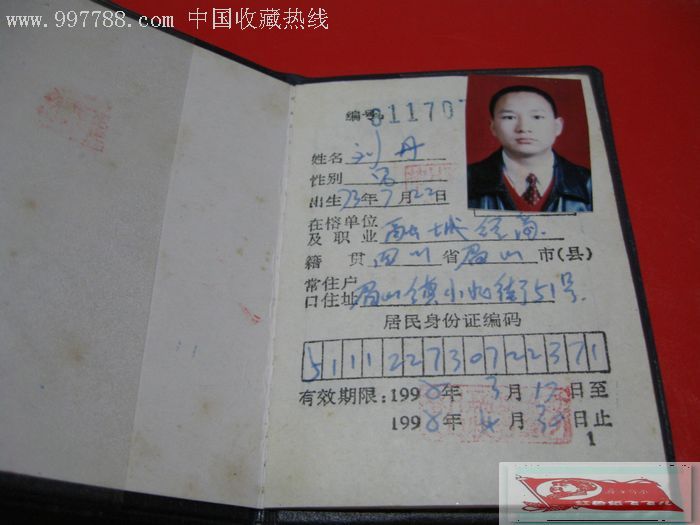 www.997788.com 中国收藏热线
编号 01170
姓名 刘丹
性别 男
出生 73年7月22日
在榕单位
及职业 融城经商
籍贯 四川省眉山市(县)
常住户
口住址 眉山镇小北街51号
居民身份证编码
511122730722371
有效期限:1998年3月12日至
1998年4月30日止
1